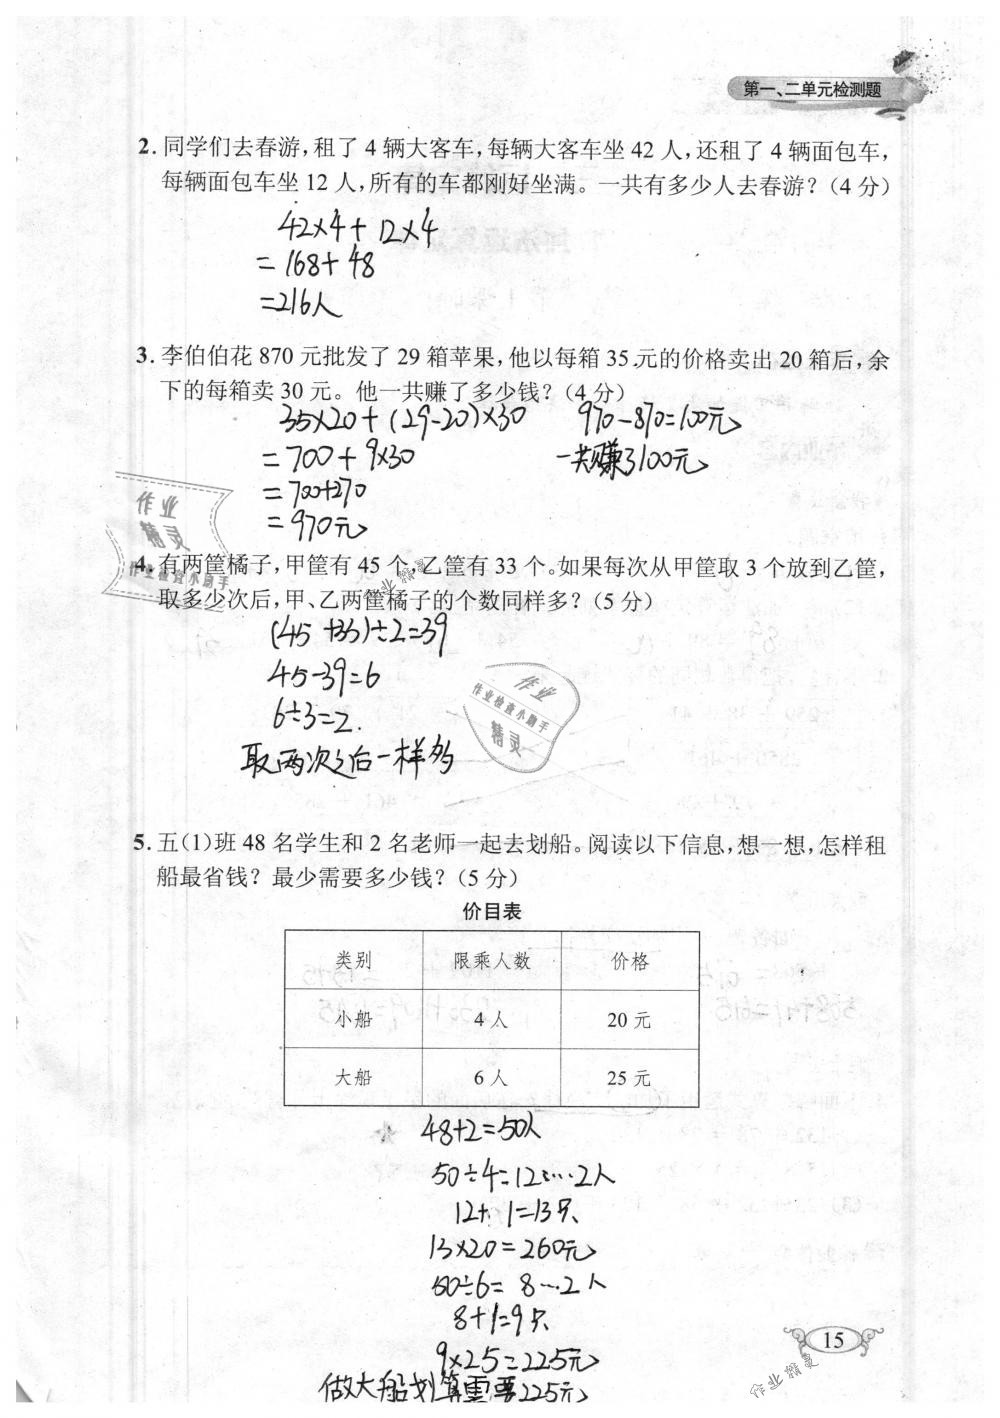 第一、二单元检测题
2. 同学们去春游,租了4辆大客车,每辆大客车坐42人,还租了4辆面包车,
每辆面包车坐12人,所有的车都刚好坐满。一共有多少人去春游?(4分)
42×4+12×4
=168+48
=216人
3. 李伯伯花870元批发了29箱苹果,他以每箱35元的价格卖出20箱后,余
下的每箱卖30元。他一共赚了多少钱?(4分)
35×20+(29-20)×30 970-870=100元
=700+9×30 一共赚了100元
=700+270
=970元
作业
精灵
作业检查小助手
4. 有两筐橘子,甲筐有45个,乙筐有33个。如果每次从甲筐取3个放到乙筐,
取多少次后,甲、乙两筐橘子的个数同样多?(5分)
作业精灵
(45+33)÷2=39
45-39=6
6÷3=2
取两次之后一样多
作业
作业检查小助手
精灵
5. 五(1)班48名学生和2名老师一起去划船。阅读以下信息,想一想,怎样租
船最省钱?最少需要多少钱?(5分)
价目表
类别 限乘人数 价格
小船 4人 20元
大船 6人 25元
48+2=50人
50÷4=12…2人
12+1=13只
13×20=260元
50÷6=8…2人
8+1=9只
9×25=225元
做大船划算需要225元
15
作业精灵